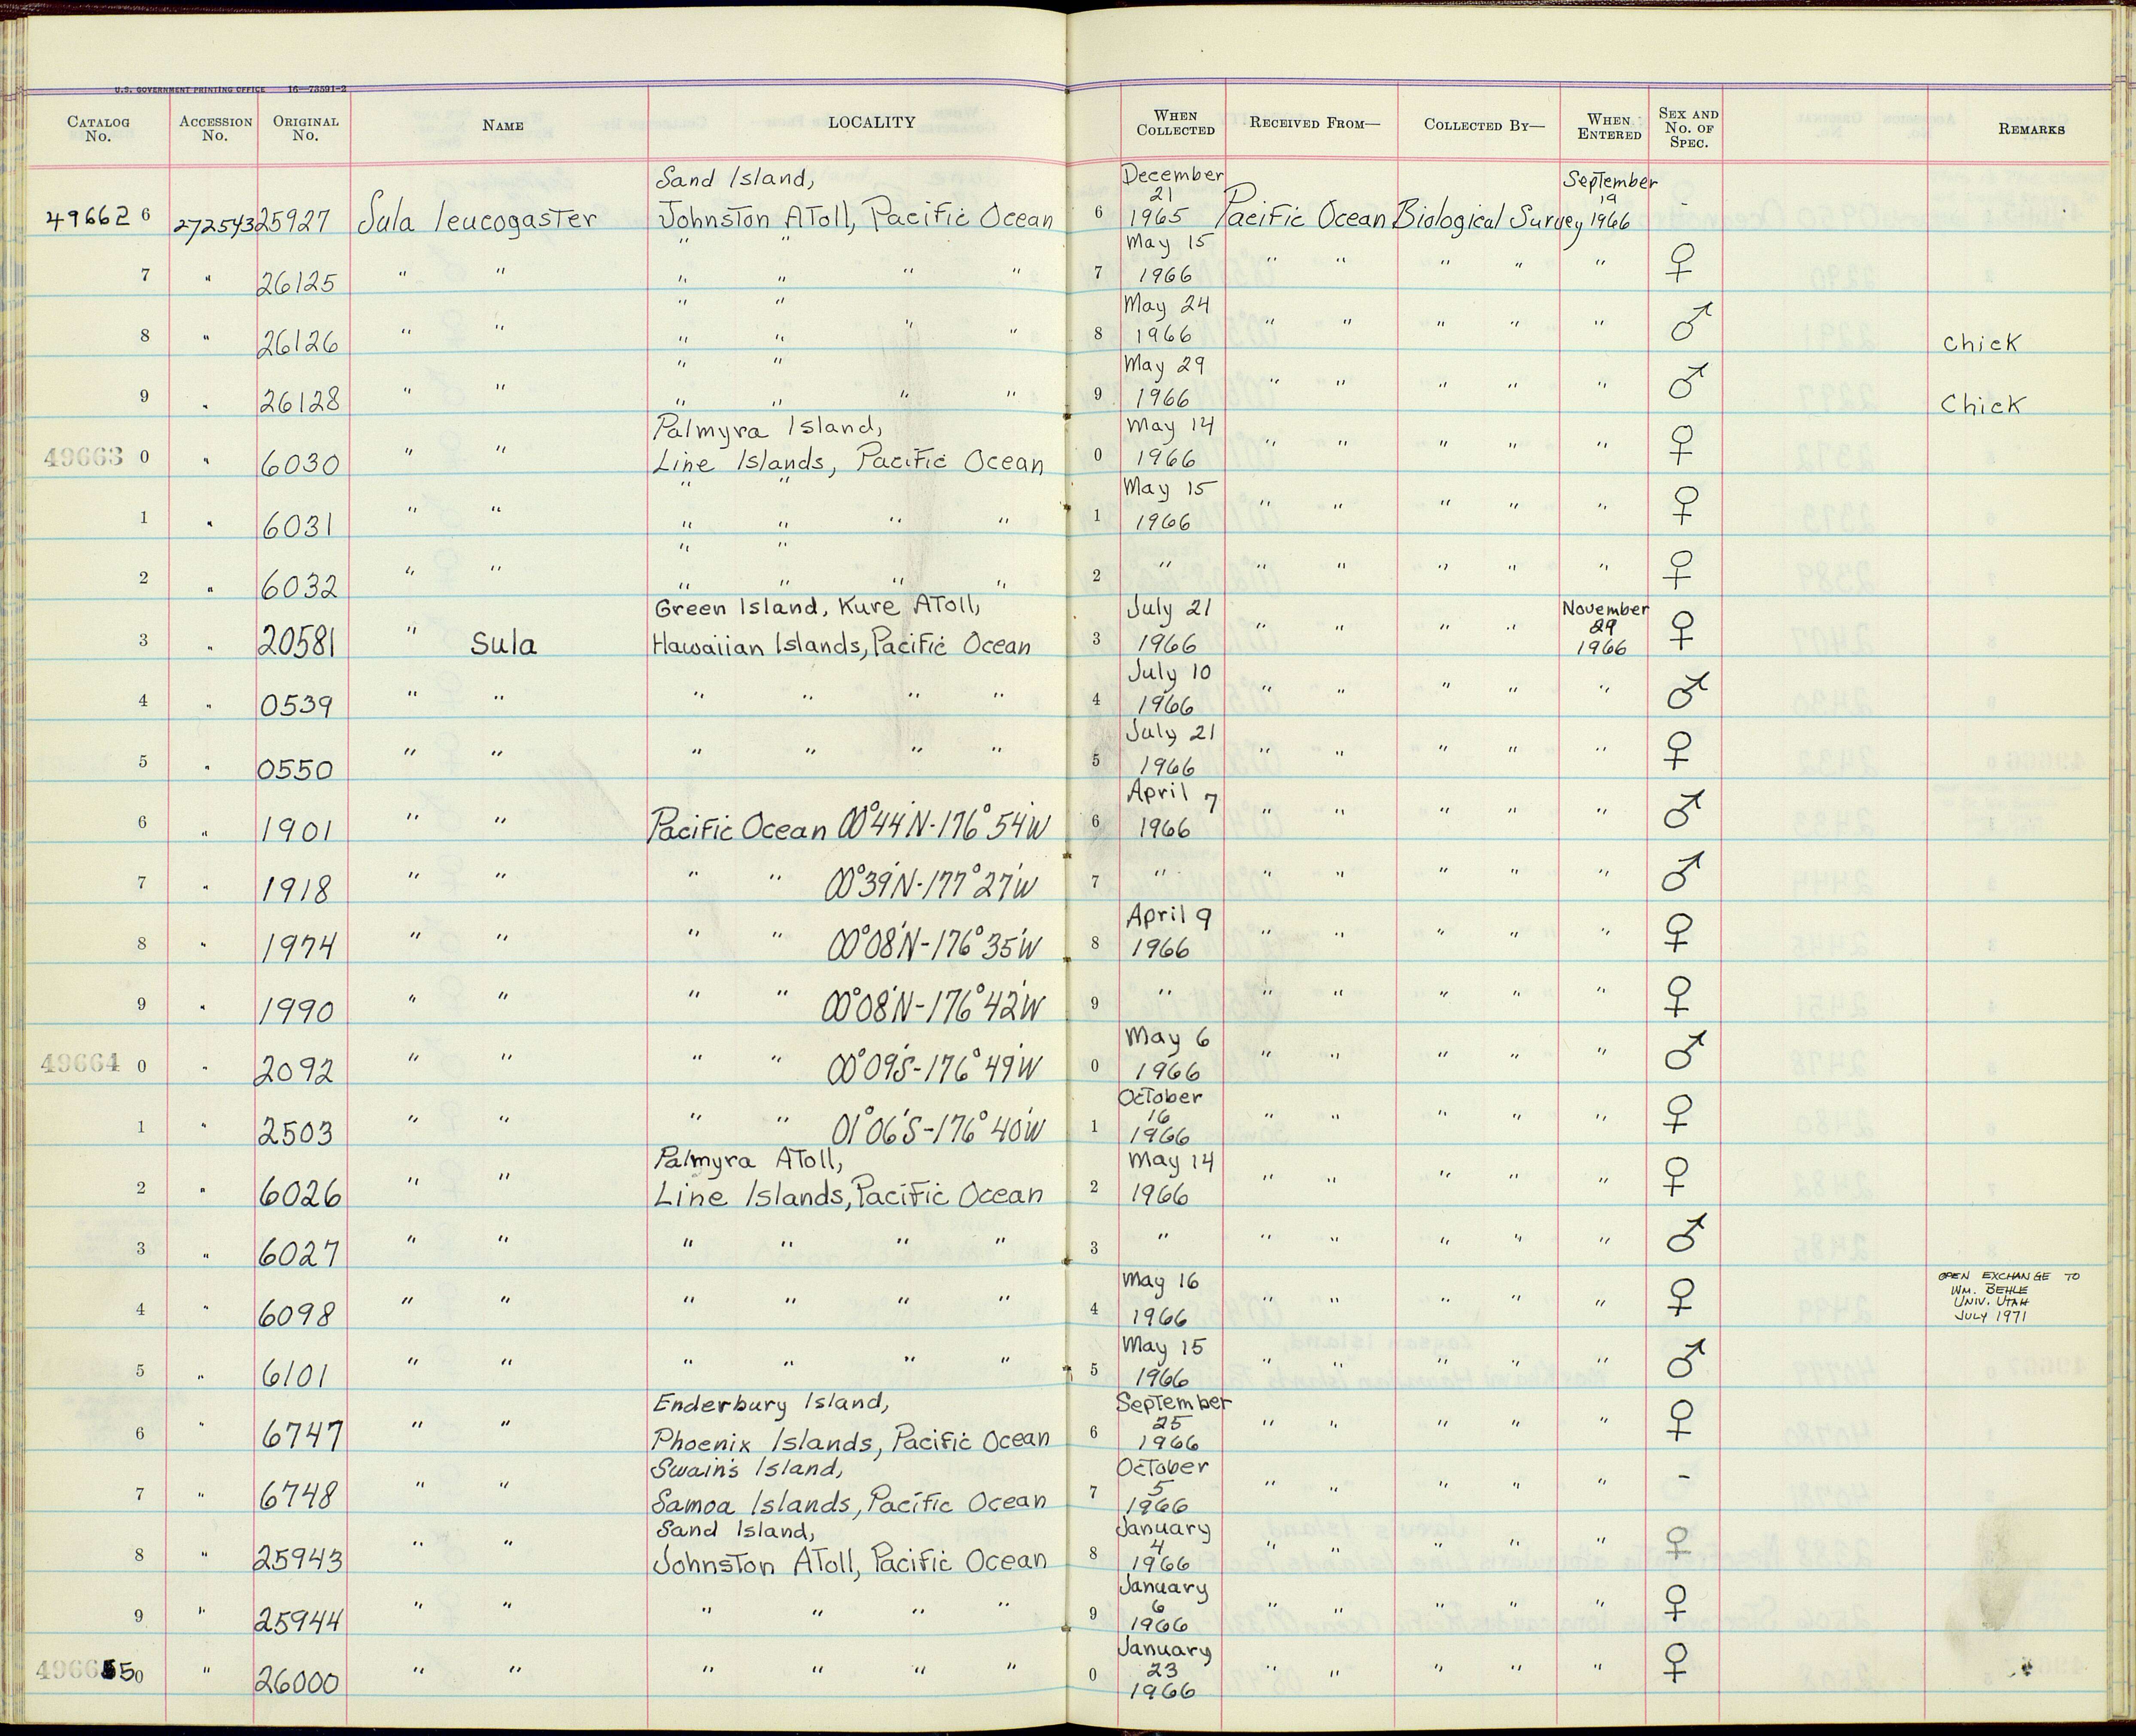 U.S. GOVERNMENT PRINTING OFFICE 16—73591-2
CATALOG No. ACCESSION No. ORIGINAL No. NAME LOCALITY WHEN COLLECTED RECEIVED FROM— COLLECTED BY— WHEN ENTERED SEX AND No. OF SPEC. REMARKS
Sand Island, December 21 September 19
49662 6 272543 25927 Sula leucogaster Johnston Atoll, Pacific Ocean 6 1965 Pacific Ocean Biological Survey 1966 -
" " May 15
7 " 26125 " " " " " " 7 1966 " " " " " ♀
" " May 24
8 " 26126 " " " " " " 8 1966 " " " " " ♂ Chick
" " May 29
9 " 26128 " " " " " " 9 1966 " " " " " ♂ Chick
Palmyra Island, May 14
49663 0 " 6030 " " Line Islands, Pacific Ocean 0 1966 " " " " " ♀
" " May 15
1 " 6031 " " " " " " 1 1966 " " " " " ♀
" "
2 " 6032 " " " " " " 2 " " " " " " ♀
Green Island, Kure Atoll, July 21 November 29
3 " 20581 " Sula Hawaiian Islands, Pacific Ocean 3 1966 " " " " 1966 ♀
July 10
4 " 0539 " " " " " " 4 1966 " " " " " ♂
July 21
5 " 0550 " " " " " " 5 1966 " " " " " ♀
April 7
6 " 1901 " " Pacific Ocean 00°44'N-176°54'W 6 1966 " " " " " ♂
7 " 1918 " " " " 00°39'N-177°27'W 7 " " " " " " ♂
April 9
8 " 1974 " " " " 00°08'N-176°35'W 8 1966 " " " " " ♀
9 " 1990 " " " " 00°08'N-176°42'W 9 " " " " " " ♀
May 6
49664 0 " 2092 " " " " 00°09'S-176°49'W 0 1966 " " " " " ♂
October 16
1 " 2503 " " " " 01°06'S-176°40'W 1 1966 " " " " " ♀
Palmyra Atoll, May 14
2 " 6026 " " Line Islands, Pacific Ocean 2 1966 " " " " " ♀
3 " 6027 " " " " " " 3 " " " " " " ♂
May 16 OPEN EXCHANGE TO
4 " 6098 " " " " " " 4 1966 " " " " " ♀ WM. BEHLE
UNIV. UTAH
JULY 1971
May 15
5 " 6101 " " " " " " 5 1966 " " " " " ♂
Enderbury Island, September 25
6 " 6747 " " Phoenix Islands, Pacific Ocean 6 1966 " " " " " ♀
Swain's Island, October 5
7 " 6748 " " Samoa Islands, Pacific Ocean 7 1966 " " " " " -
Sand Island, January 4
8 " 25943 " " Johnston Atoll, Pacific Ocean 8 1966 " " " " " ♀
January 6
9 " 25944 " " " " " " 9 1966 " " " " " ♀
January 23
49665 0 " 26000 " " " " " " 0 1966 " " " " " ♀